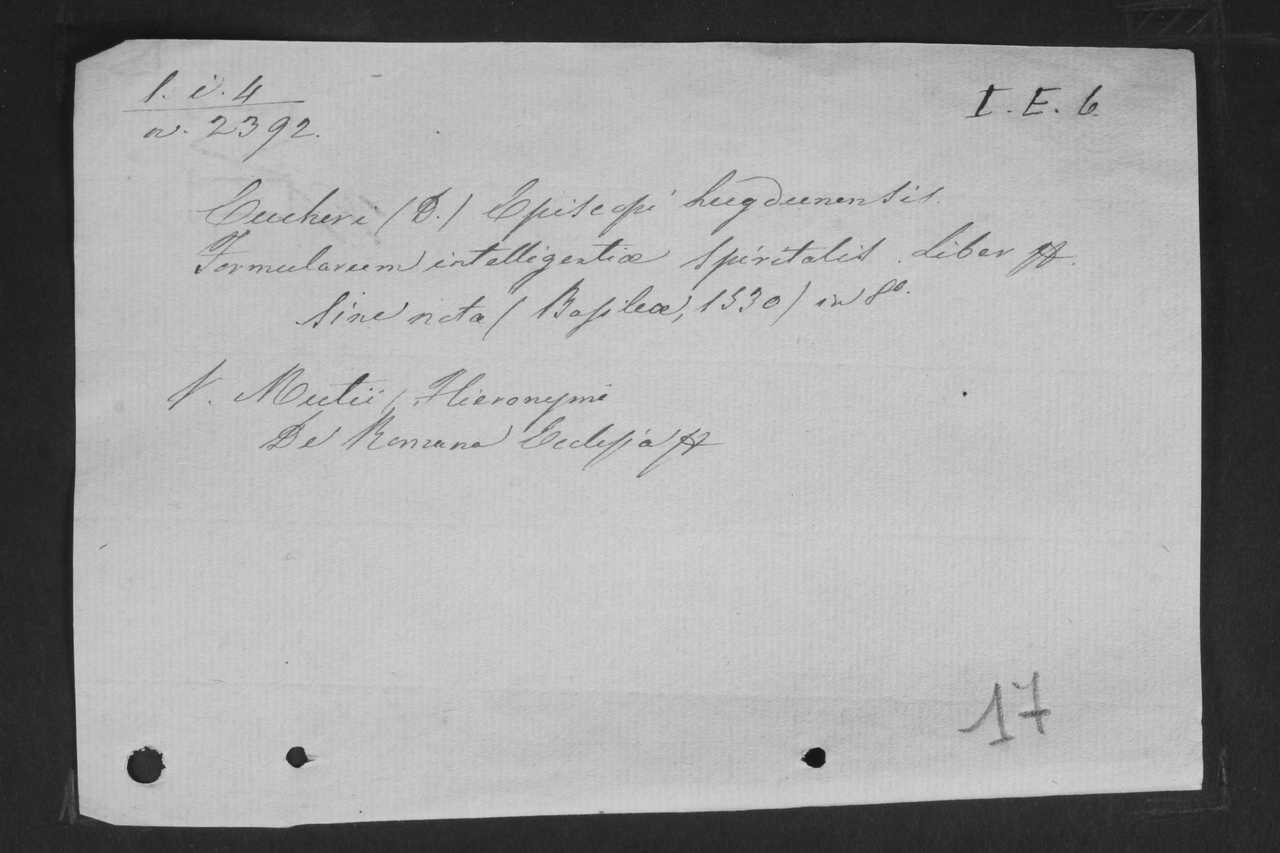 l. i. 4
I. E. 6
n. 2392.
Eucheri (D.) Episcopi Lugdunensis.
Formularum intelligentiæ spiritalis. Liber
Sine nota (Basileæ, 1530) in 8º.
V. Mutii, Hieronymi
De Romana Ecclesia
17